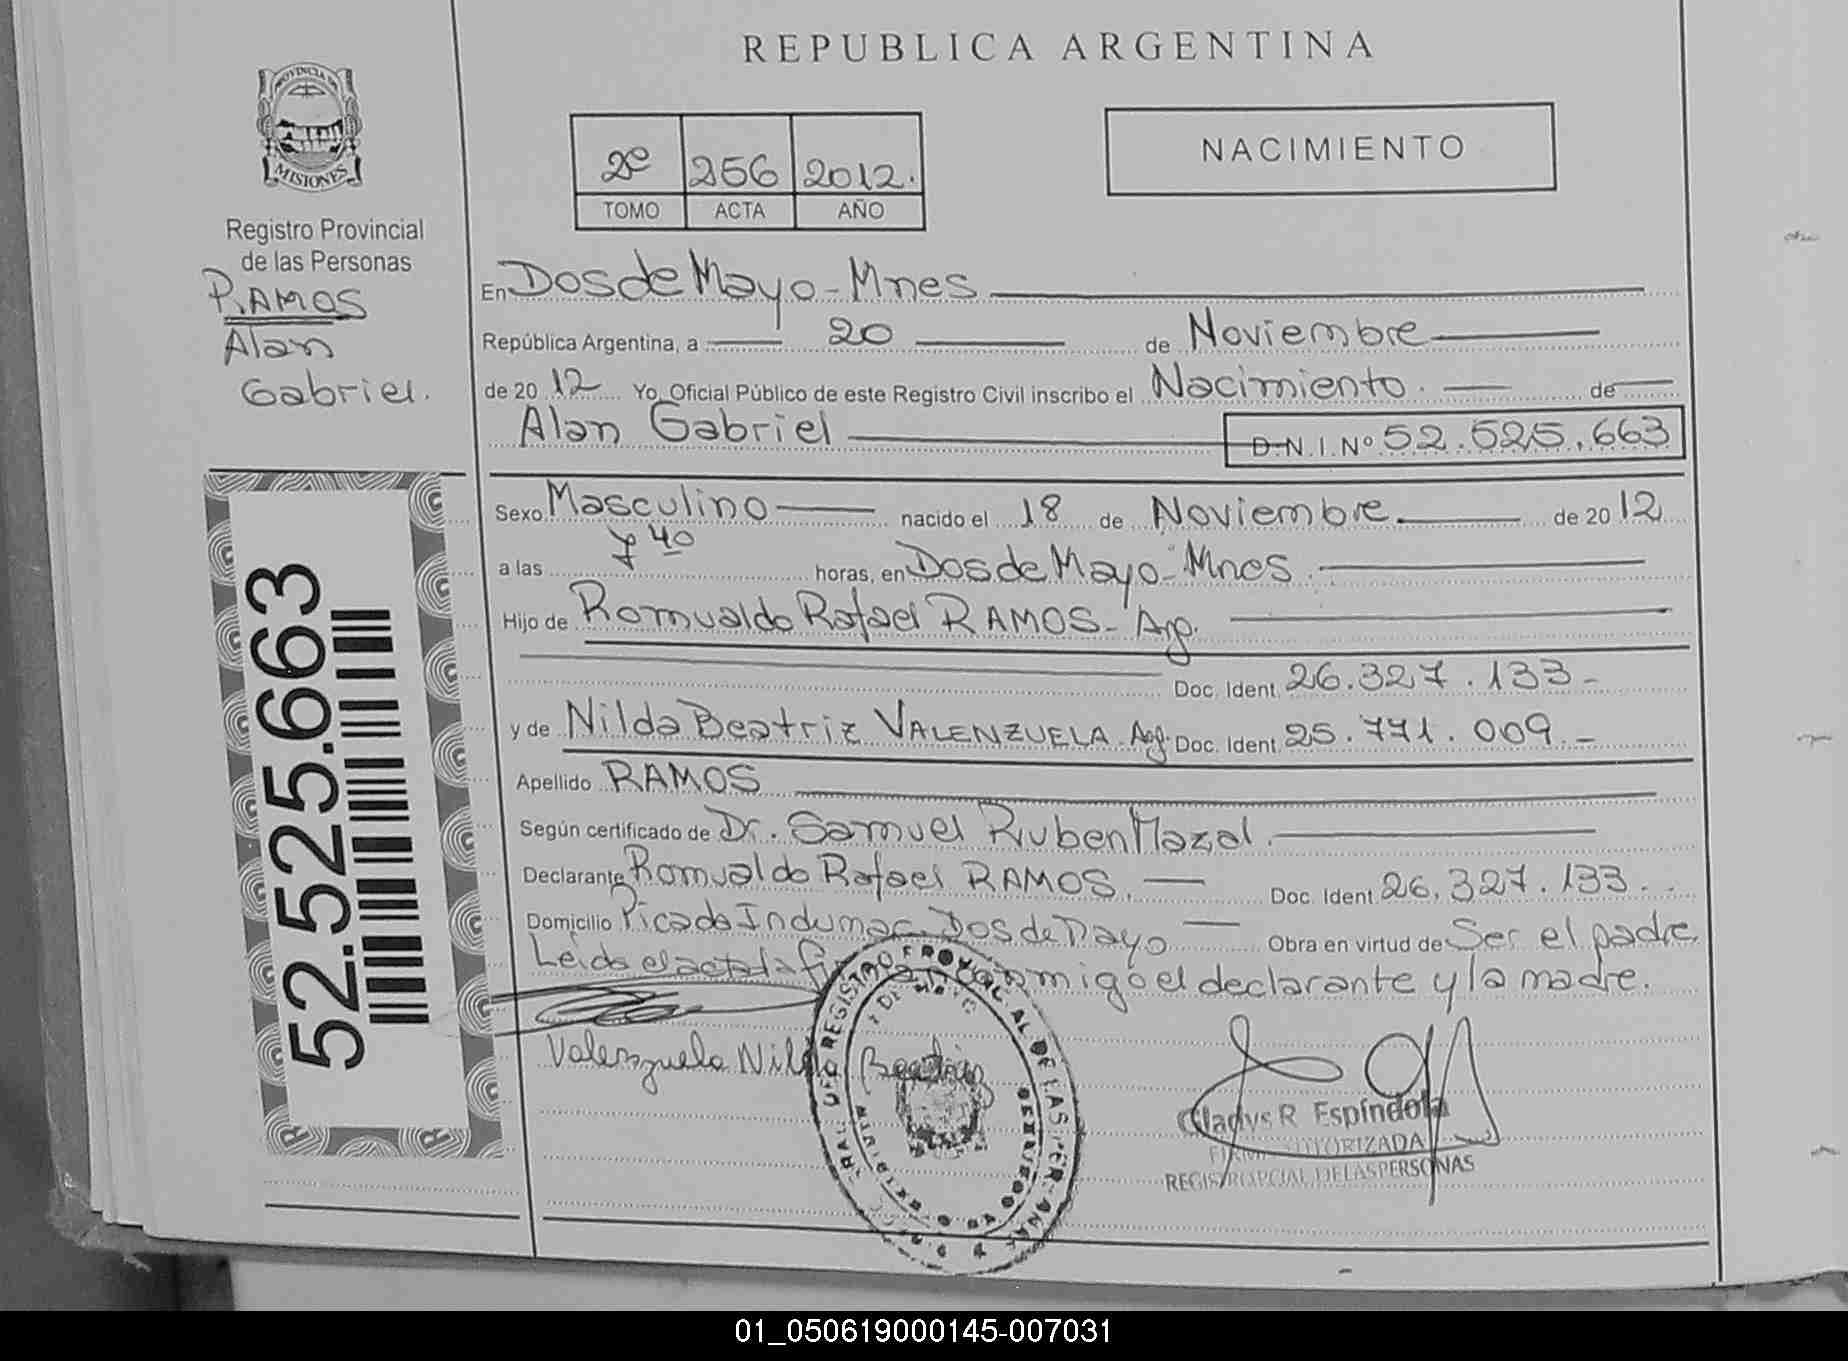 REPUBLICA ARGENTINA
PROVINCIA DE
MISIONES
Registro Provincial
de las Personas
RAMOS
Alan
Gabriel.
52.525.663
2º 256 2012.
TOMO ACTA AÑO
NACIMIENTO
En Dos de Mayo - Mnes
República Argentina, a 20 de Noviembre
de 20 12 Yo, Oficial Público de este Registro Civil inscribo el Nacimiento. de
Alan Gabriel D.N.I.Nº 52.525.663
Sexo Masculino nacido el 18 de Noviembre de 20 12
a las 7 40 horas, en Dos de Mayo - Mnes.
Hijo de Romualdo Rafael RAMOS - Arg.
Doc. Ident. 26.327.133 -
y de Nilda Beatriz VALENZUELA. Arg. Doc. Ident. 25.771.009. -
Apellido RAMOS
Según certificado de Dr. Samuel Ruben Mazal.
Declarante Romualdo Rafael RAMOS. Doc. Ident. 26.327.133.
Domicilio Picada Indumar. Dos de Mayo Obra en virtud de Ser el padre.
Leida el acta la firman conmigo el declarante y la madre.
Valenzuela Nilda Beatriz
Gladys R. Espíndola
FIRMA AUTORIZADA
REGISTRO PCIAL DE LAS PERSONAS
01_050619000145-007031